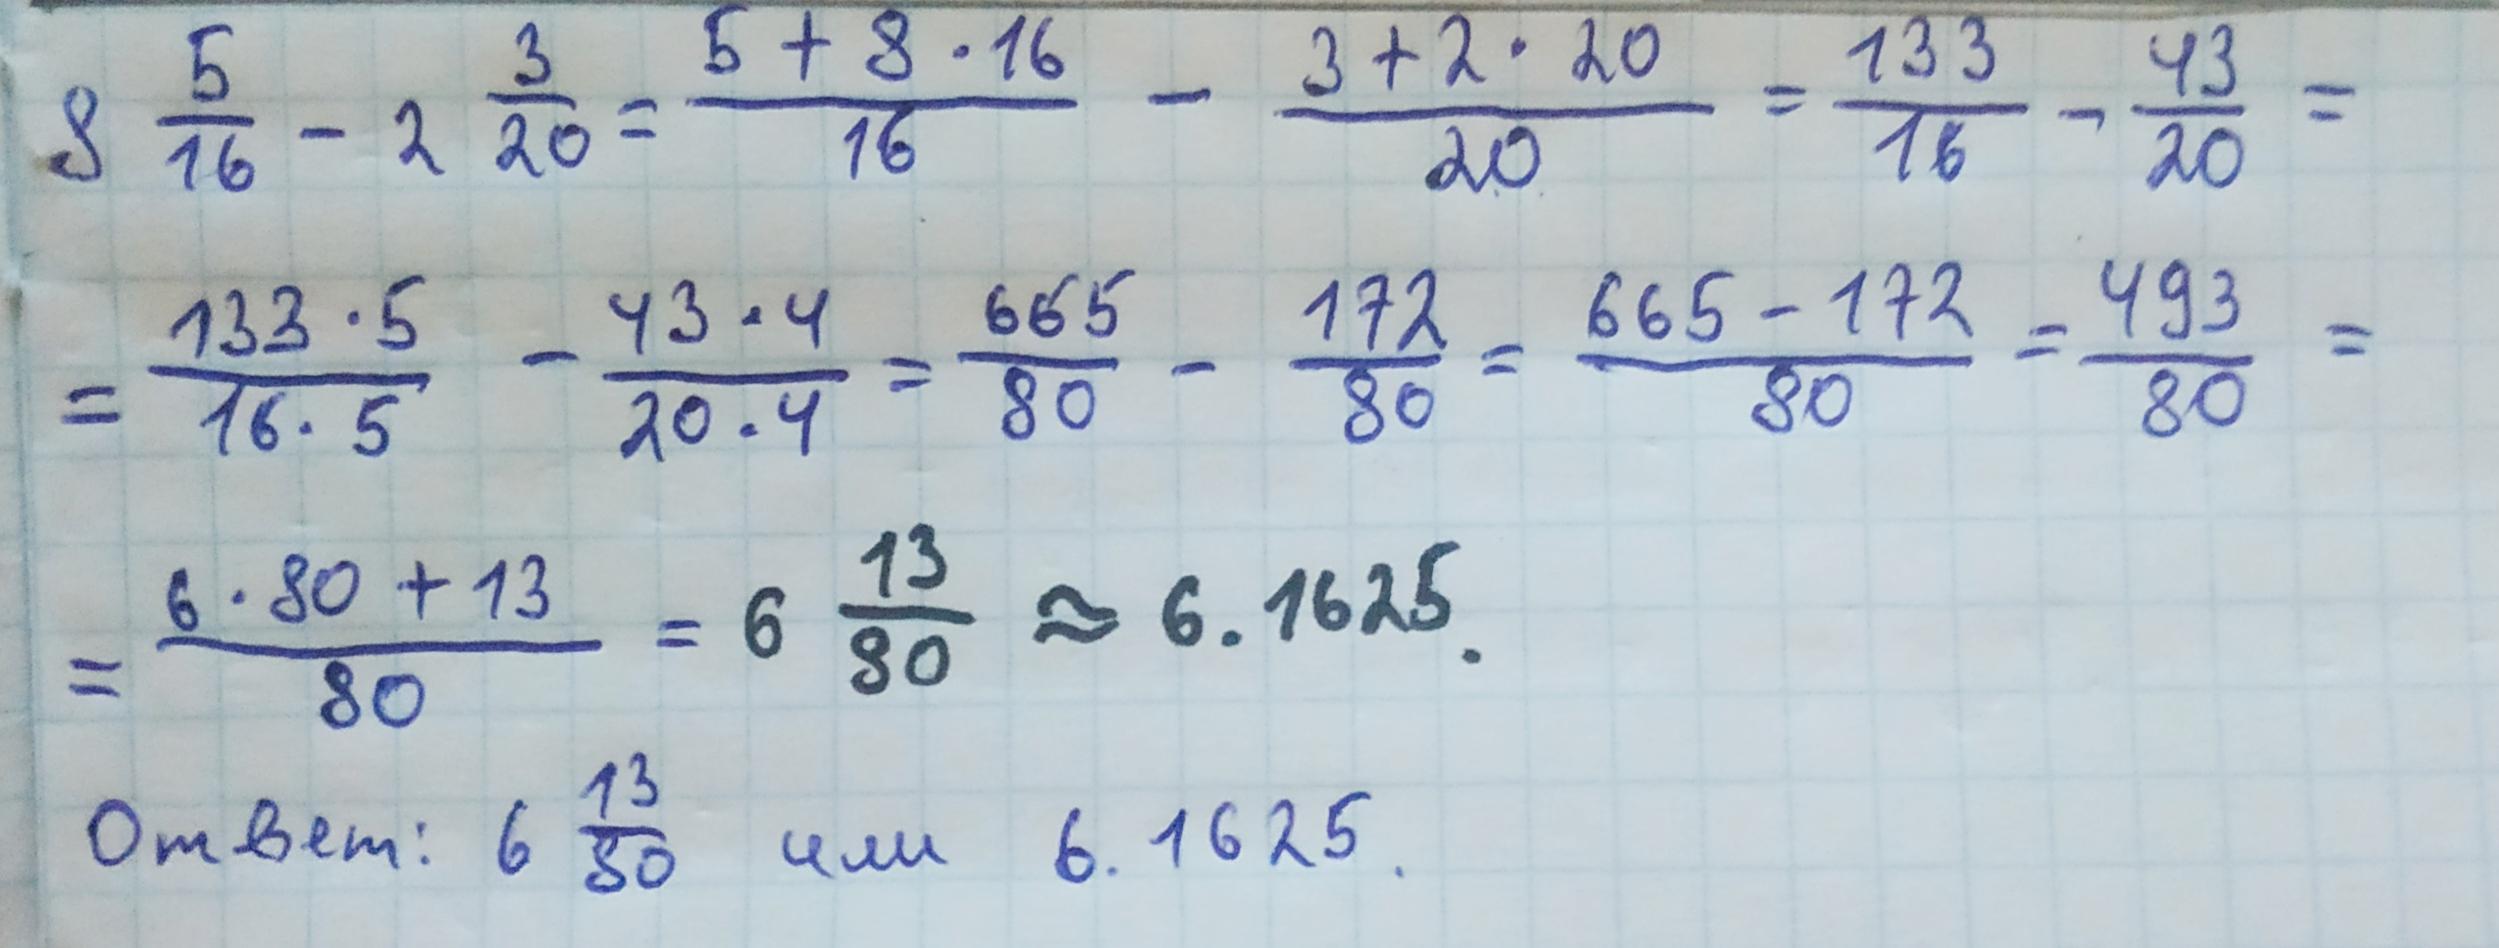 8 5/16 - 2 3/20 = (5 + 8 · 16)/16 - (3 + 2 · 20)/20 = 133/16 - 43/20 =
= (133 · 5)/(16 · 5) - (43 · 4)/(20 · 4) = 665/80 - 172/80 = (665 - 172)/80 = 493/80 =
= (6 · 80 + 13)/80 = 6 13/80 ≈ 6.1625.
Ответ: 6 13/80 или 6.1625.